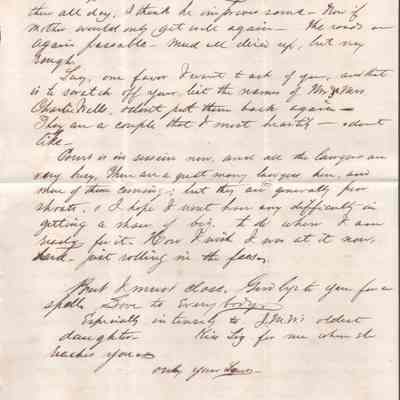 ther all day. I think he improves some - Now if
mother would only get well again - The roads are
again passable - Mud all dried up, but very
rough.
Say, one favor I want to ask of you, and that
is to scratch off your list the names of Mr. & Mrs
Charlie Wells, & don't put them back again -
They are a couple that I most heartily - don't
like -
Court is in session now, and all the lawyers are
very busy. There are a great many lawyers here, and
more of them coming; but they are generally poor
shoats, & I hope I wont have any difficulty in
getting a share of biz. to do when I am
ready for it. How I wish I was at it now,
hard - just rolling in the fees.
But I must close. Good bye to you for a
spell. Love to Everybody.
Especially intensely to J.M.W's oldest
daughter. Kiss for me when she
reaches you
only your